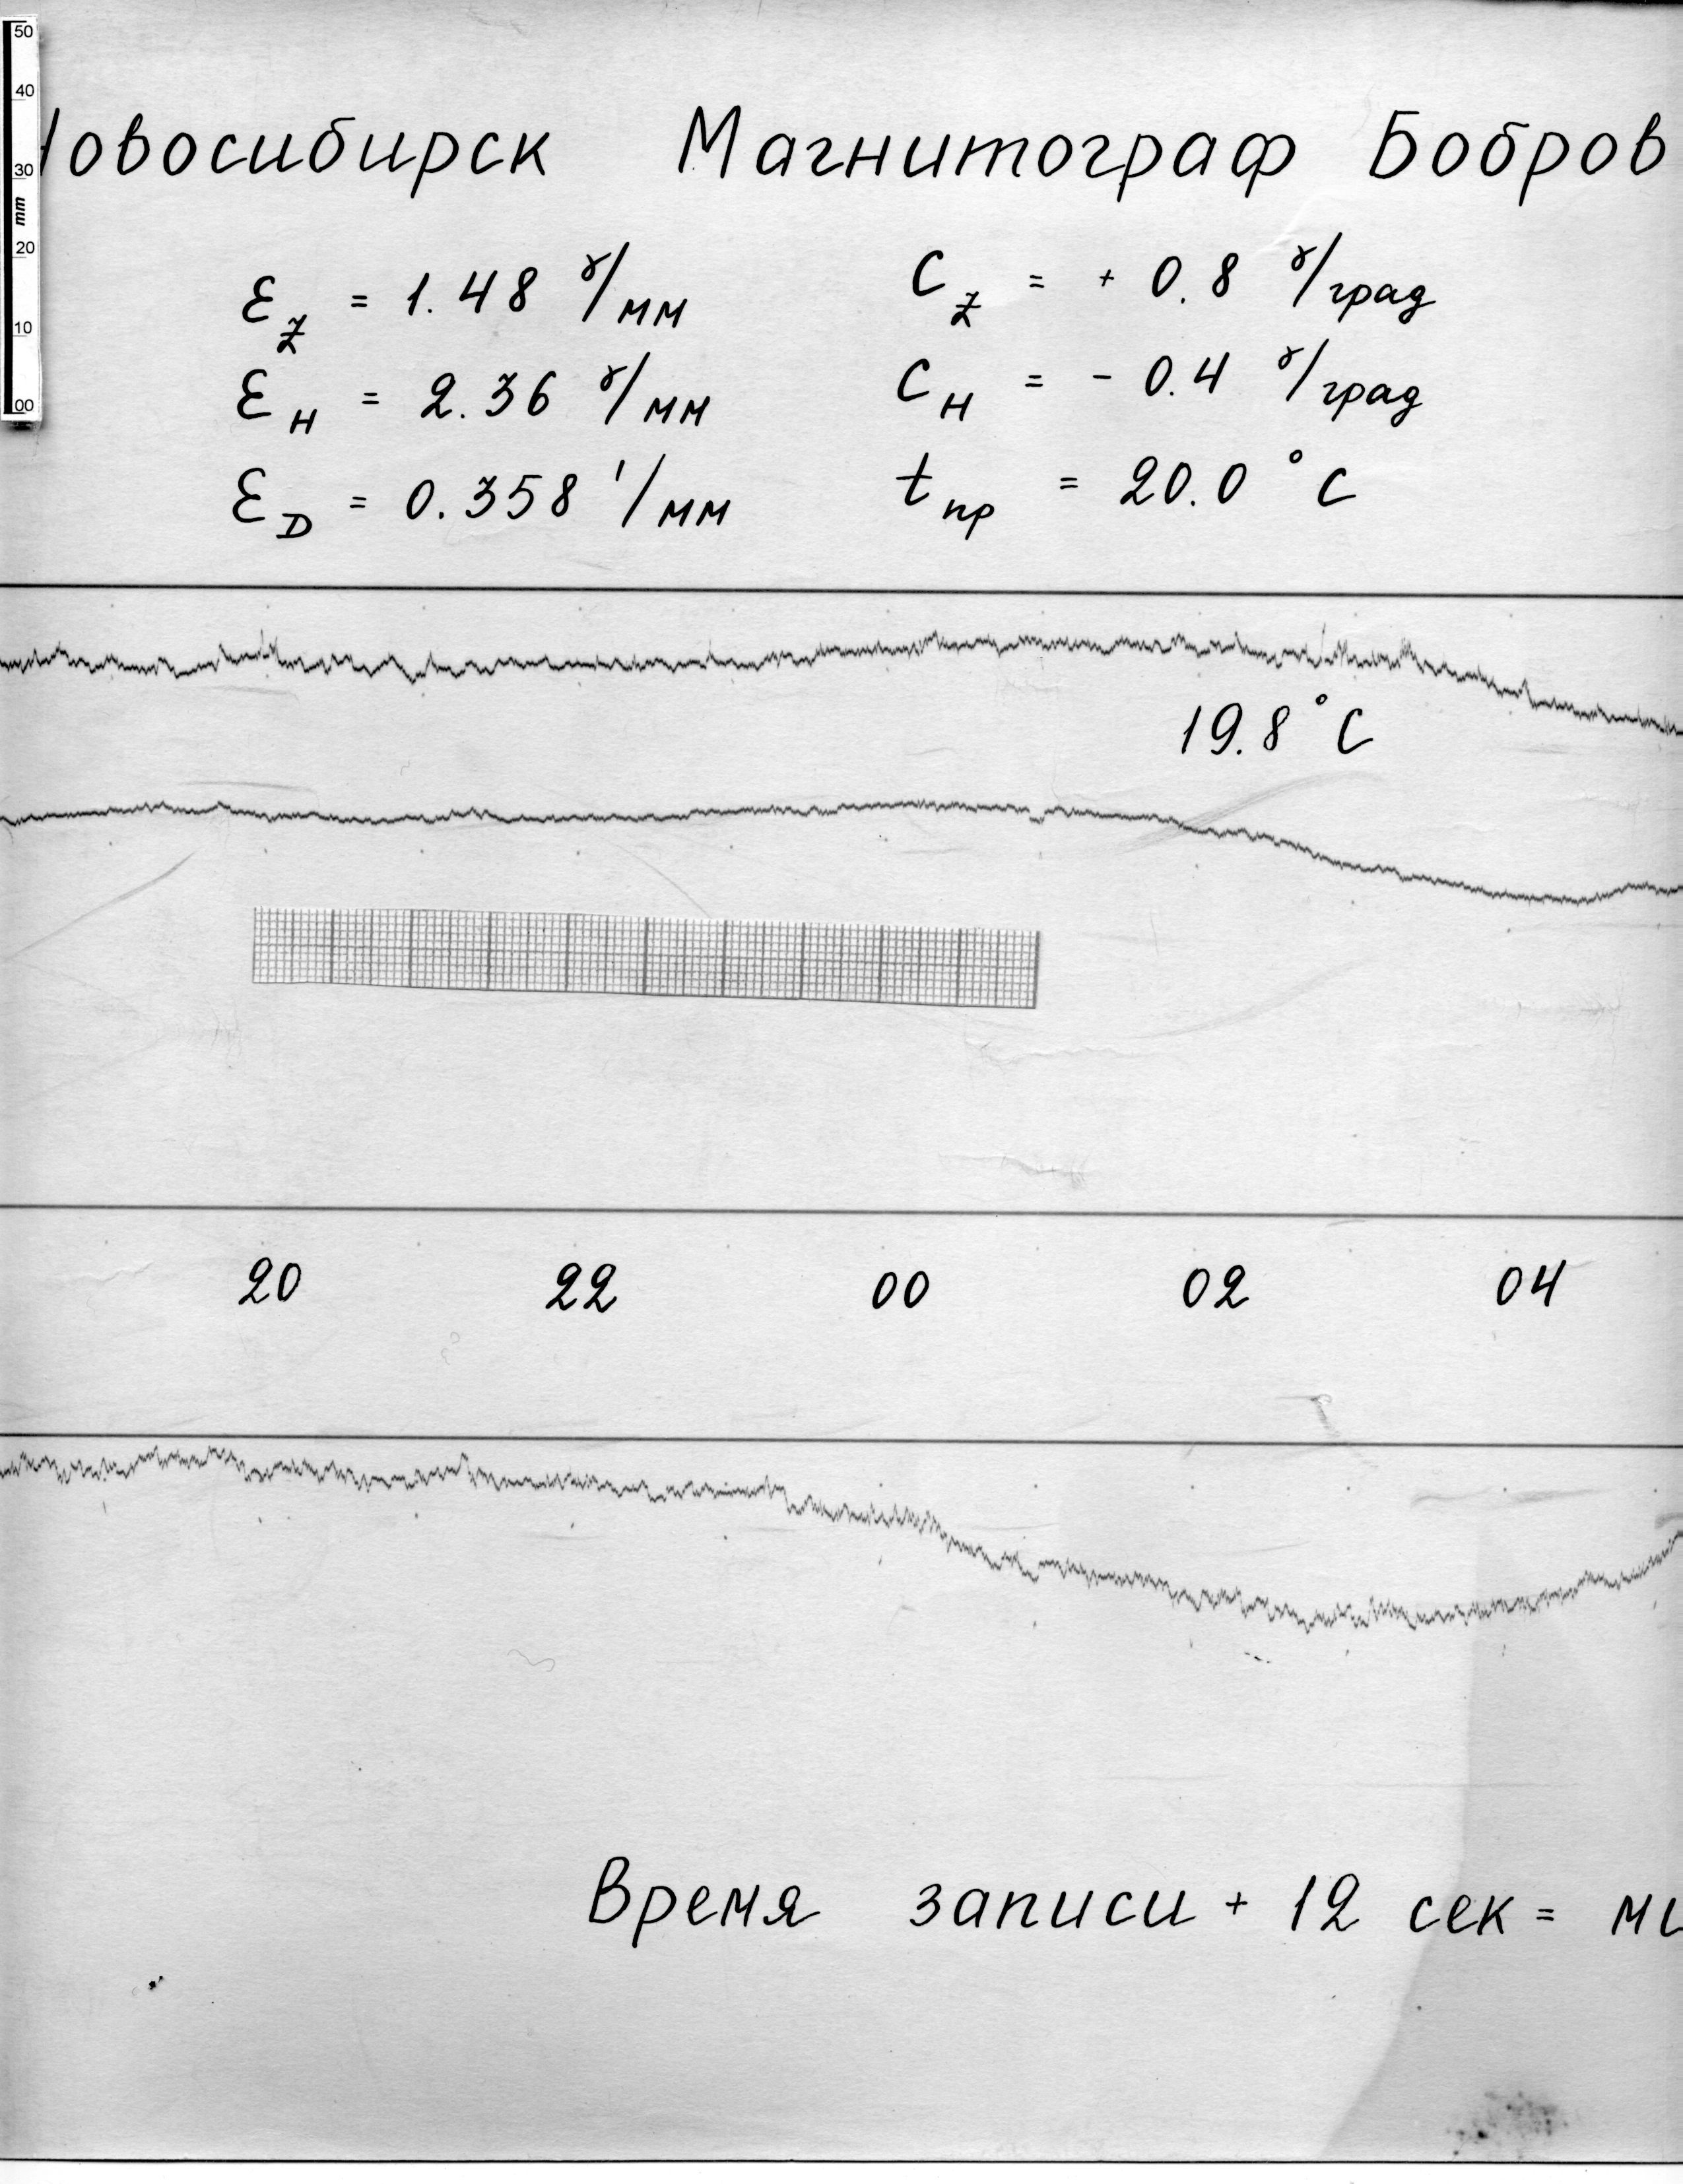 50
40
30
mm
20
10
00
Новосибирск Магнитограф Бобров
ε_Z = 1.48 γ/мм C_Z = + 0.8 γ/град
ε_H = 2.36 γ/мм C_H = - 0.4 γ/град
ε_D = 0.358 '/мм t_пр = 20.0 °C
19.8 °C
20 22 00 02 04
Время записи + 12 сек =